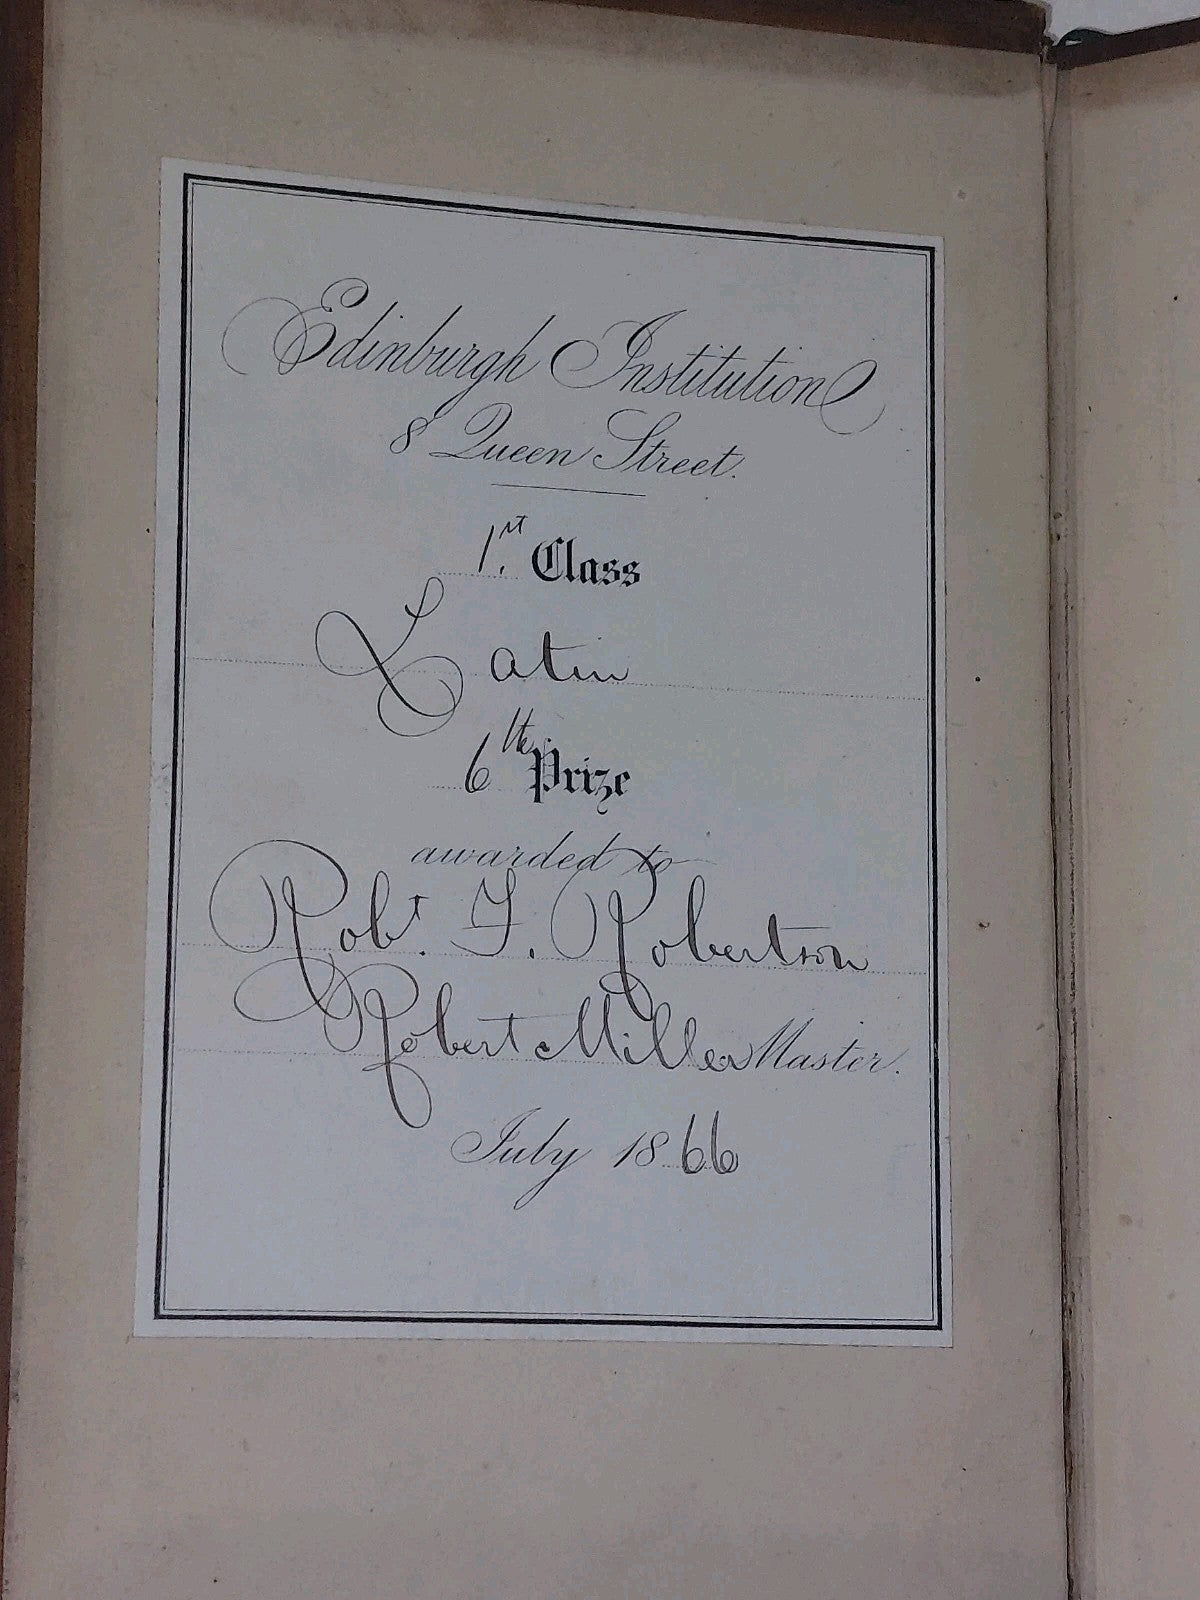 Edinburgh Institution
8 Queen Street.
1.st Class
Latin
6th Prize
awarded to
Robt. F. Robertson
Robert Miller Master.
July 1866